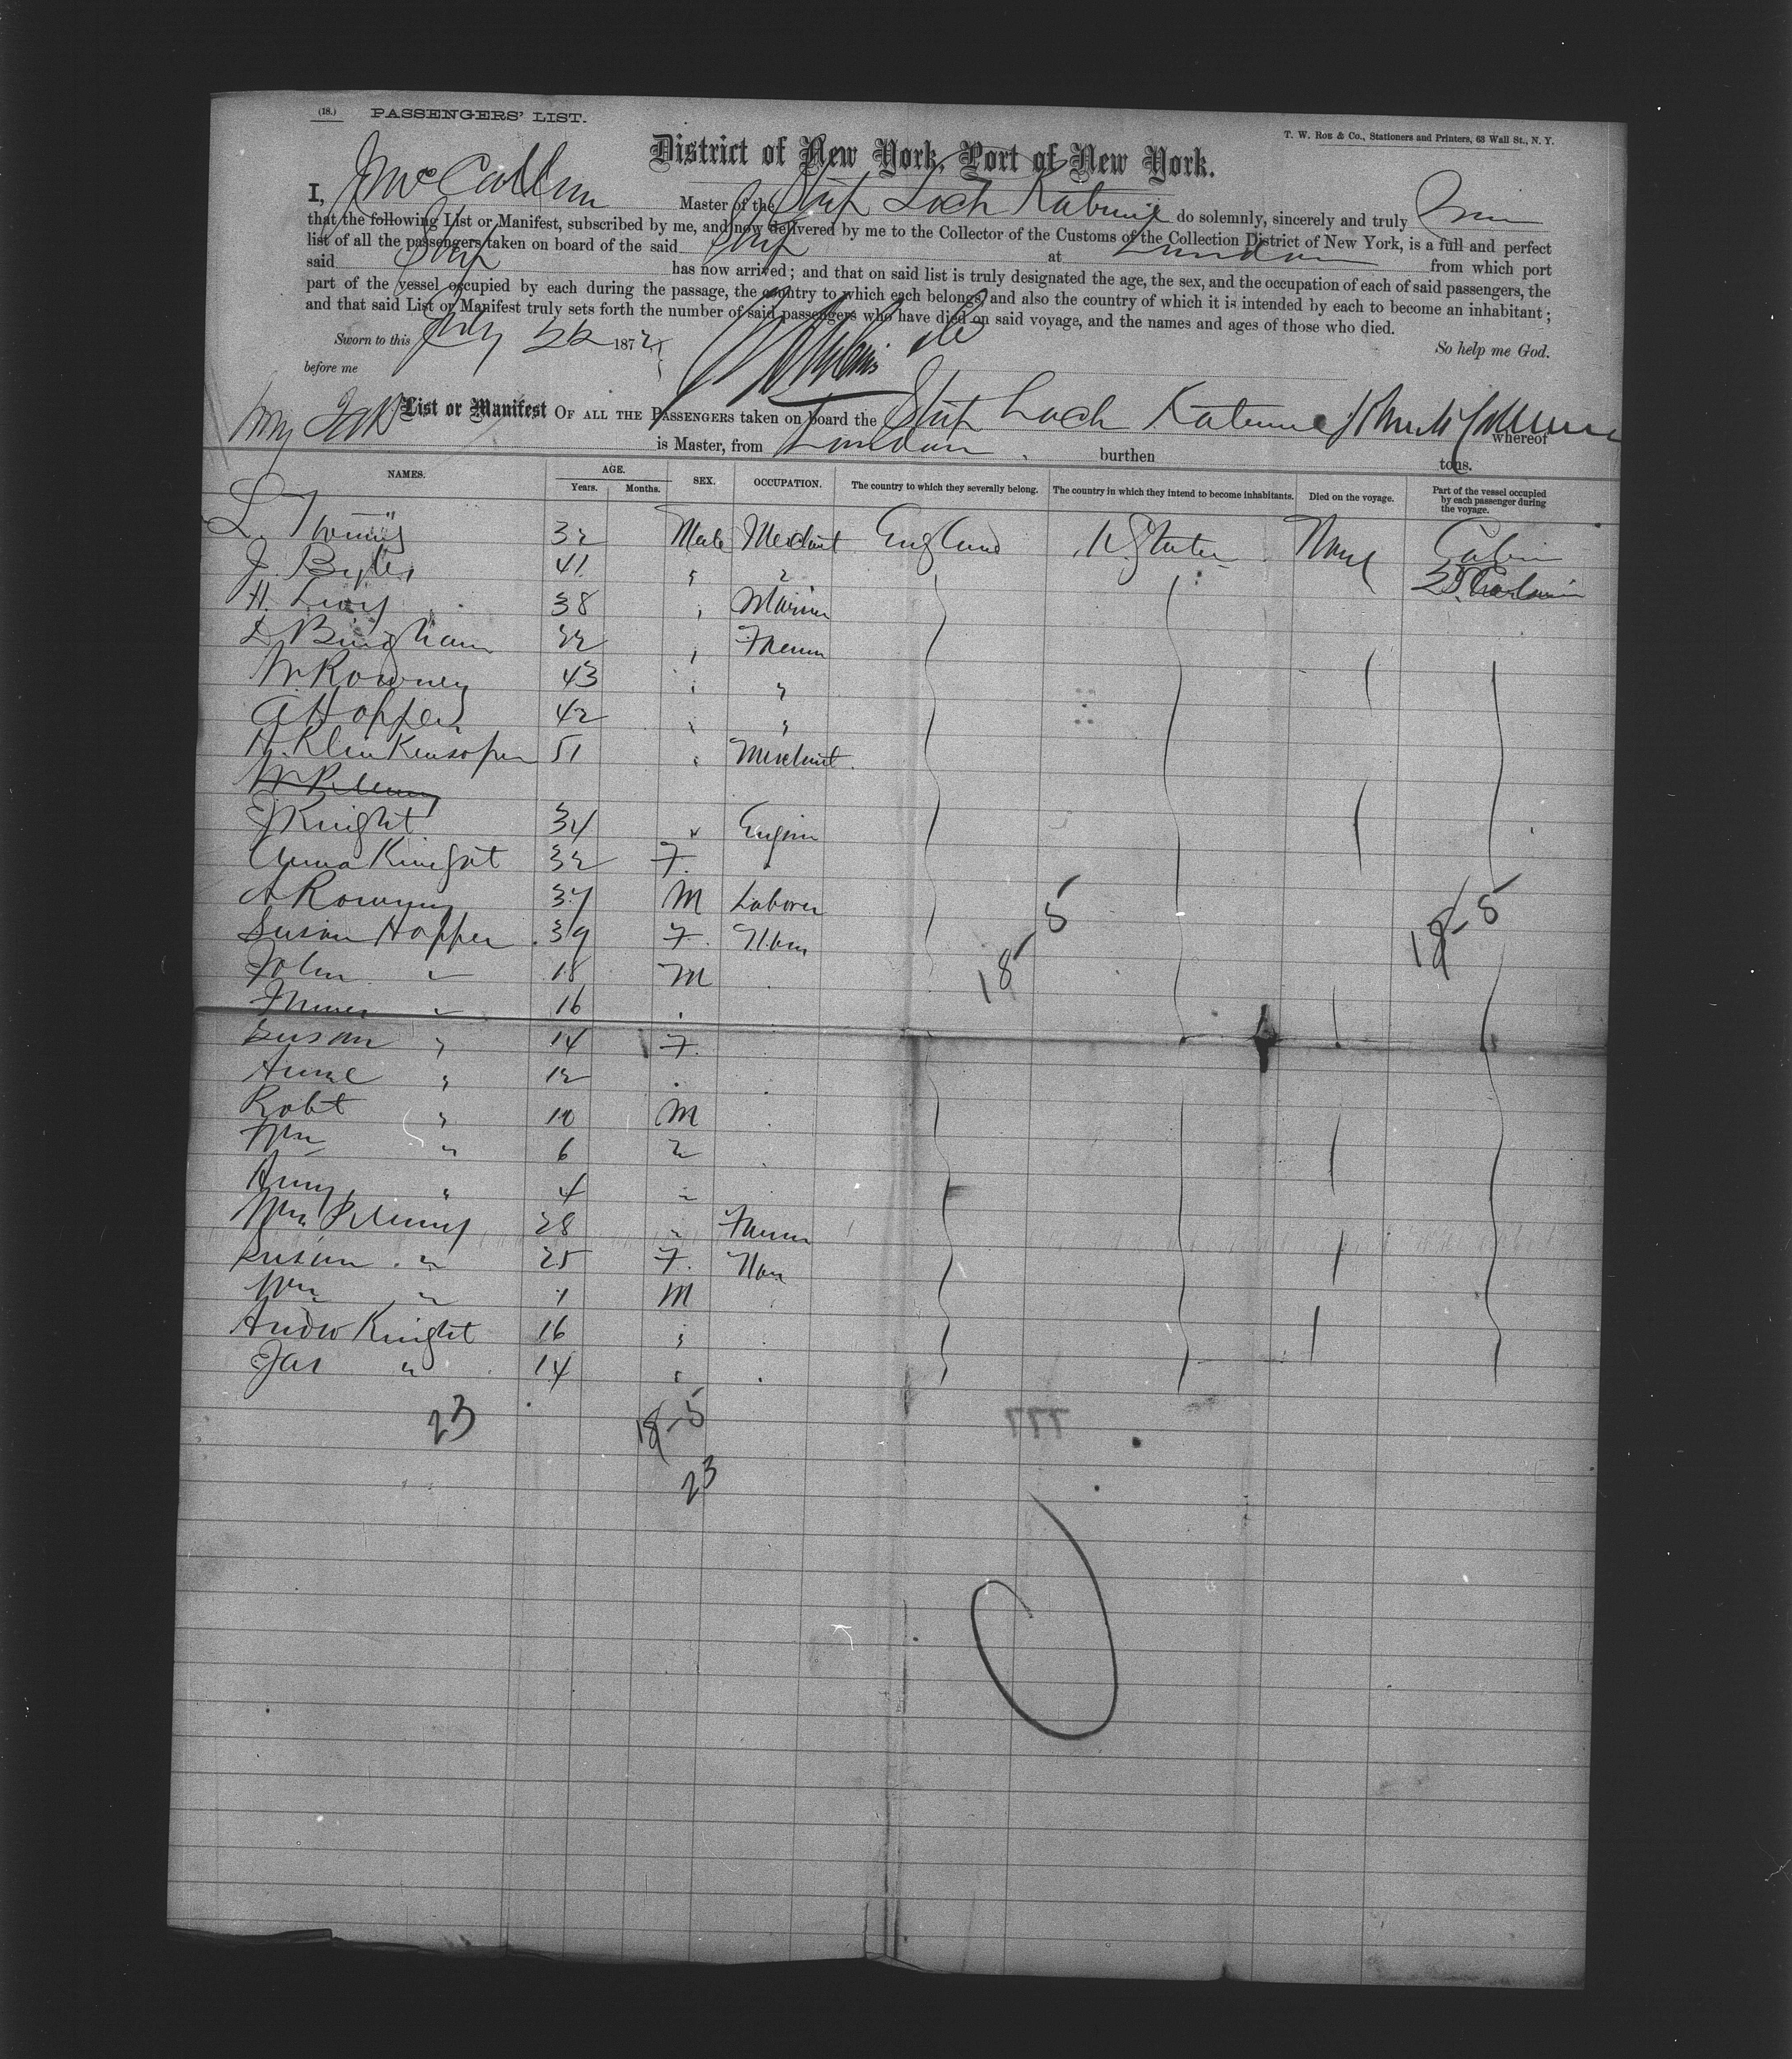 (18.) PASSENGERS' LIST.
T. W. ROE & Co., Stationers and Printers, 63 Wall St., N. Y.
District of New York, Port of New York.
I, J McCallum Master of the Ship Loch Katrine do solemnly, sincerely and truly
that the following List or Manifest, subscribed by me, and now delivered by me to the Collector of the Customs of the Collection District of New York, is a full and perfect
list of all the passengers taken on board of the said Ship at London from which port
said Ship has now arrived; and that on said list is truly designated the age, the sex, and the occupation of each of said passengers, the
part of the vessel occupied by each during the passage, the country to which each belongs, and also the country of which it is intended by each to become an inhabitant;
and that said List or Manifest truly sets forth the number of said passengers who have died on said voyage, and the names and ages of those who died.
Sworn to this July 22 187
So help me God.
before me
List or Manifest OF ALL THE PASSENGERS taken on board the Ship Loch Katrine whereof
is Master, from London burthen tons.
NAMES. AGE. Years. Months. SEX. OCCUPATION. The country to which they severally belong. The country in which they intend to become inhabitants. Died on the voyage. Part of the vessel occupied by each passenger during the voyage.
L. Thomas 32 Male Merchant England U States None Cabin
J. 41 " "
H. Levy 38 "
D Bingham 32 " Farmer
W Rowney 43 " "
A Hopper 42 " "
H. 51 " Merchant.
J Knight 34 " Engin
Anna Knight 32 F.
A Rowney 37 M Laborer
Susan Hopper 39 F. None
John " 18 M
" 16
Susan " 14 F.
Anne " 12
Robt " 10 M
Wm " 6 "
" 4 "
Wm 28 " Farmer
Susan " 25 F. None
Wm " 1 M
Andw Knight 16 "
Jas " 14 "
18 5
18-5
23 18-5
23
777